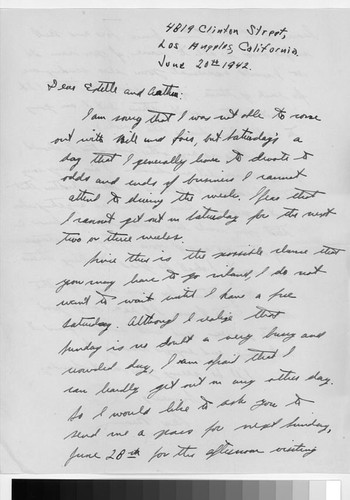 4819 Clinton Street,
Los Angeles, California.
June 20th 1942.
Dear Estelle and
I am sorry that I was not able to come
out with Bill and Lois, but Saturday's a
day that I generally have to devote to
odds and ends of business I cannot
attend to during the week. I fear that
I cannot get out on Saturday for the next
two or three weeks.
Since this is the possible chance that
you may have to go inland, I do not
want to wait until I have a free
Saturday. Although I realize that
Sunday is no doubt a very busy and
crowded day, I am afraid that I
can hardly get out on any other day.
So I would like to ask you to
send me a pass for next Sunday,
June 28th for the afternoon visiting